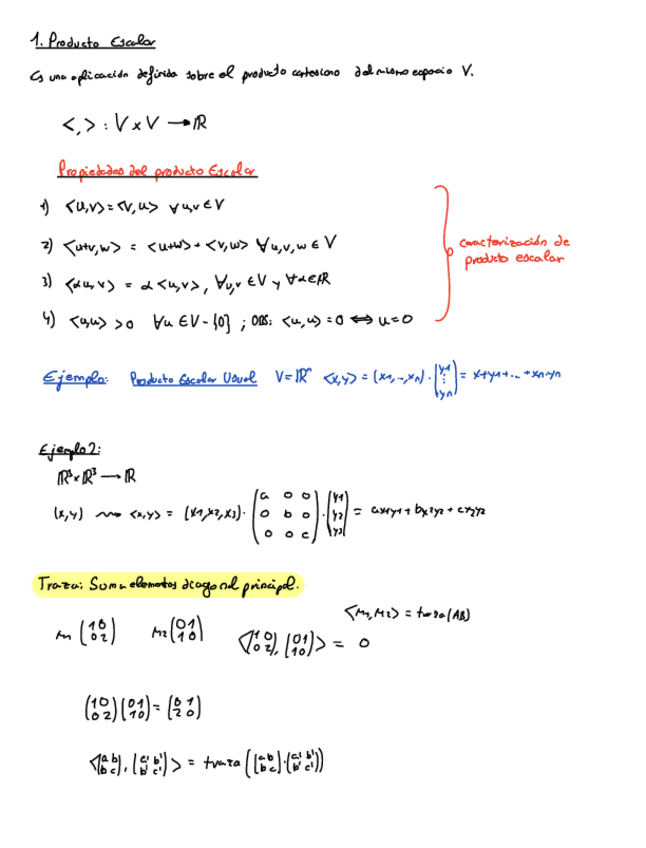 1. Producto Escalar
Es una aplicación definida sobre el producto cartesiano del mismo espacio V.
<,> : V x V → ℝ
Propiedades del producto Escalar
1) <u,v> = <v,u> ∀u,v ∈ V
2) <u+v,w> = <u+w> + <v,w> ∀u,v,w ∈ V
3) <αu,v> = α<u,v>, ∀u,v ∈ V y ∀α∈ℝ
4) <u,u> >0 ∀u ∈ V-{0} ; OBS: <u,u> = 0 ⟺ u=0
caracterización de
producto escalar
Ejemplo: Producto Escalar Usual V=ℝⁿ <x,y> = (x1,..,xn) · (y1 ⋮ yn) = x1y1+... + xn·yn
Ejemplo 2:
ℝ³×ℝ³ → ℝ
(x,y) ⇝ <x,y> = (x1,x2,x3) · (a 0 0 / 0 b 0 / 0 0 c) · (y1 / y2 / y3) = ax1y1 + bx2y2 + cx2y2
Traza: Suma elementos diagonal principal.
<M1,M2> = traza(AB)
M (1 0 / 0 2) M2 (0 1 / 1 0) <(1 0 / 0 2), (0 1 / 1 0)> = 0
(1 0 / 0 2) (0 1 / 1 0) = (0 1 / 2 0)
<(a b / b c), (a' b' / b' c')> = traza ((a b / b c) · (a' b' / b' c'))